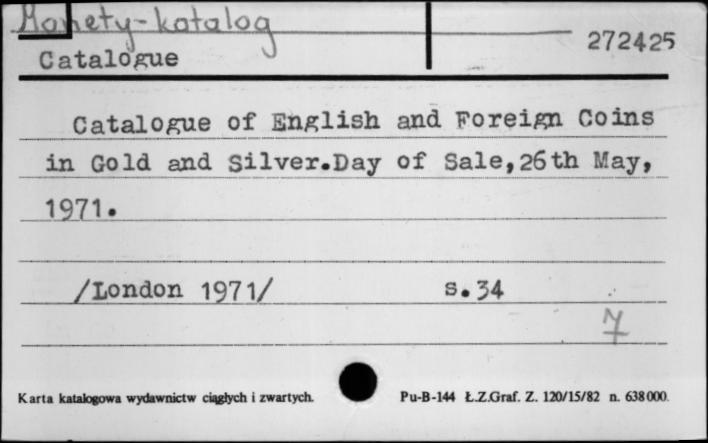 Monety-katalog
272425
Catalogue
Catalogue of English and Foreign Coins
in Gold and Silver.Day of Sale,26th May,
1971.
/London 1971/ s.34
7
Karta katalogowa wydawnictw ciągłych i zwartych. Pu-B-144 Ł.Z.Graf. Z. 120/15/82 n. 638000.